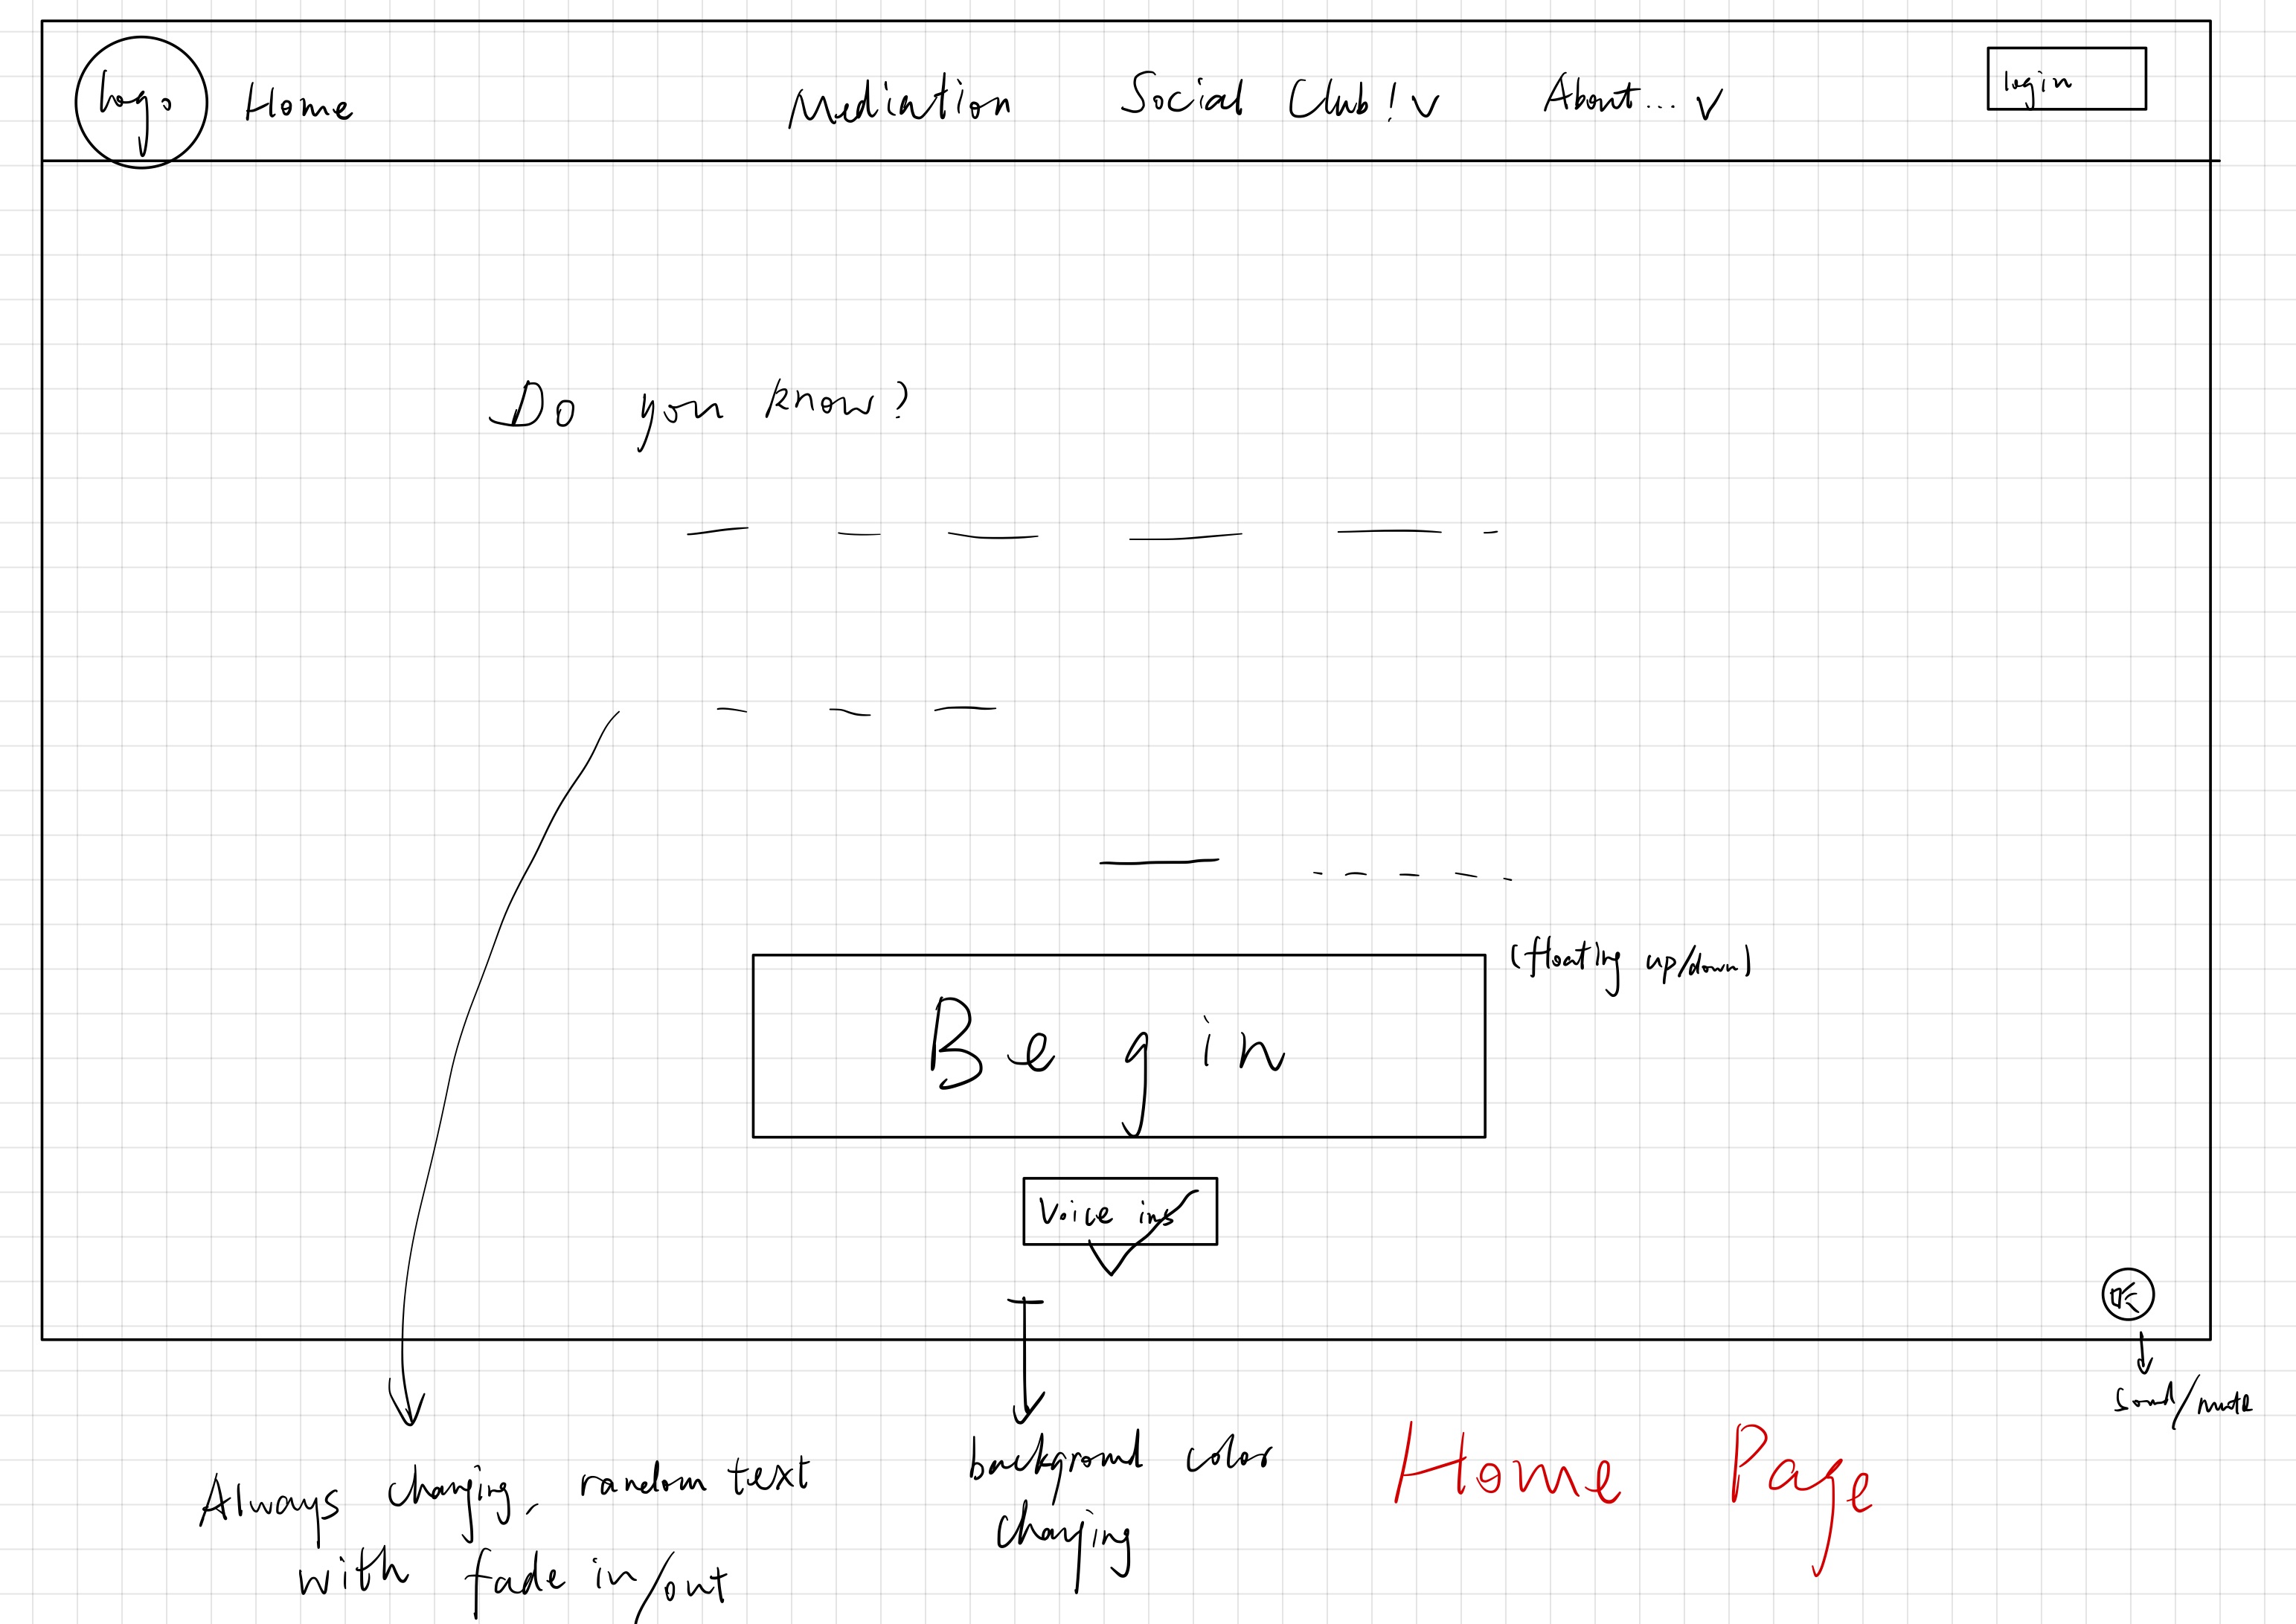 Logo Home Mediation Social Club! ∨ About... ∨ login
Do you know?
(floating up/down)
Begin
Voice ins
sound/mute
Always changing, random text
with fade in/out
background color
changing
Home Page